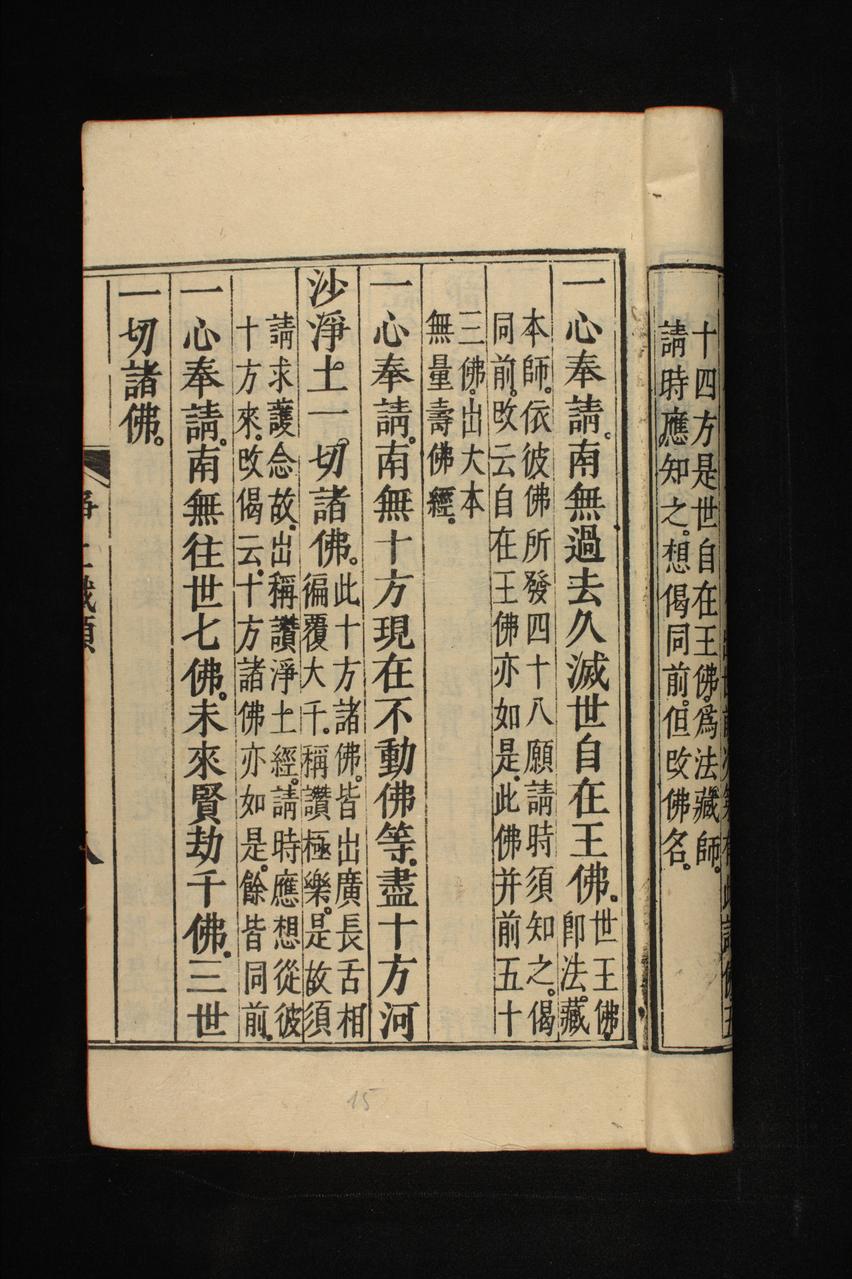 十四方是世自在王佛。爲法藏師。
請時應知之。想偈同前。但改佛名。
一心奉請。南無過去久滅世自在王佛。世王佛。
卽法。藏
本師。依彼佛所發四十八願請時須知之。偈
同前。改云自在王佛亦如是。此佛并前五十
三佛。出大本
無量壽佛經。
一心奉請。南無十方現在不動佛等。盡十方河
沙淨土一。切諸佛。此十方諸佛。皆出廣長舌相
徧覆大千。稱讚極樂。是故須
請求護念故。出稱讚淨土經。請時應想從彼
十方來。改偈云。十方諸佛亦如是。餘皆同前。
一心奉請。南無往世七佛。未來賢劫千佛。三世
一切諸佛。
八
15